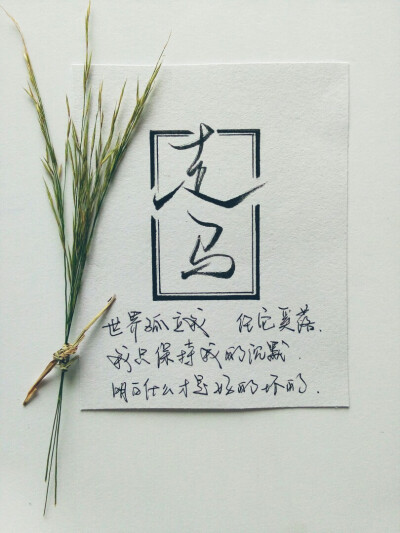 走马
世界孤立我 任它奚落.
我只保持我的沉默.
明白什么才是好的坏的.